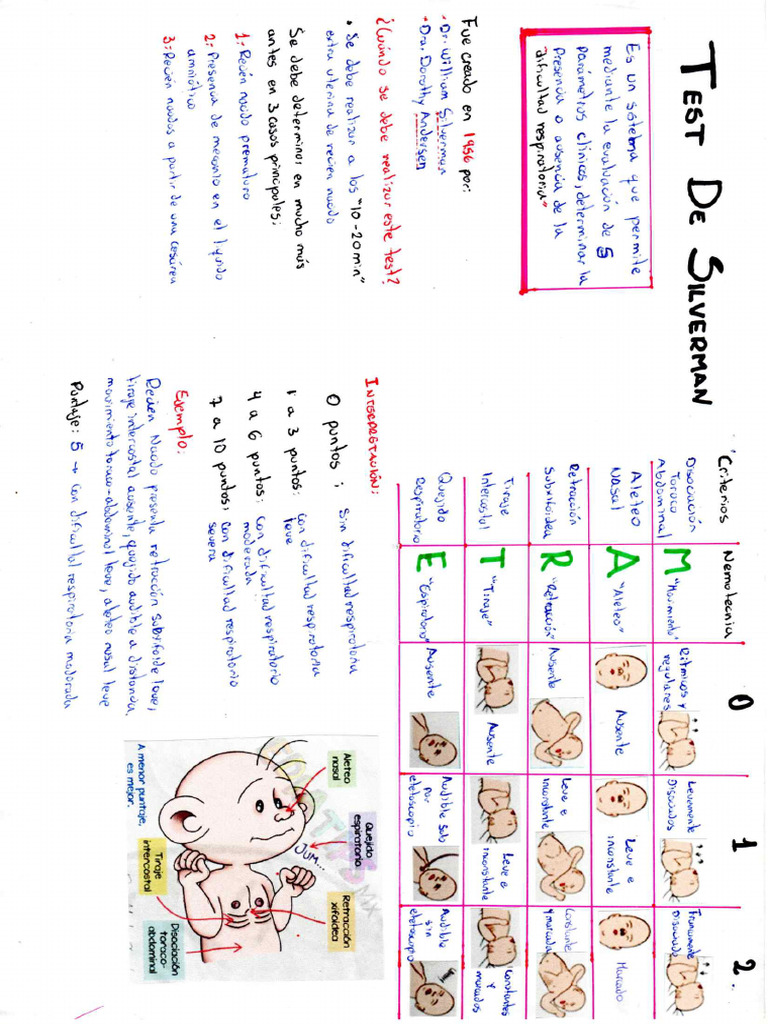 TEST DE SILVERMAN
Es un sistema que permite
mediante la evaluación de 5
parámetros clínicos, determinar la
Presencia o ausencia de la
dificultad respiratoria"
Fue creado en 1956 por:
• Dr. William Silverman
• Dra. Dorothy Andersen
¿Cuándo se debe realizar este test?
• Se debe realizar a los "10-20min"
extra uterina de recien nacido
Se debe determinar en mucho más
antes en 3 casos principales:
1: Recén nacido prematuro
2: Presencia de meconio en el líquido
amniótico
3: Recién nacidos a partir de una cesárea
Criterios Nemotecnia 0 1 2
Disociación
Toraco
Abdominal
M "Movimiento"
Ritmicos y
regulares
Levemente
Disociados
Francamente
Disociado
Aleteo
Nasal
A "Aleteo"
Ausente
Leve e
inconstante
Marcado
Retracción
Subxifoidea
R "Retracción"
Ausente
Leve e
inconstante
Constante
y marcada
Tiraje
Intercostal
T "Tiraje"
Ausente
Leve e
inconstante
Constantes
y
marcados
Quejido
Respiratorio
E "Espiratorio"
Ausente
Audible sub
por
eletoscopio
Audible
sin
eletoscopio
INTERPRETACIÓN:
0 puntos ; Sin dificultad respiratoria
1 a 3 puntos: con dificultad respiratoria
leve
4 a 6 puntos: con dificultad respiratorio
moderada
7 a 10 puntos; con dificultad respiratorio
severa
Ejemplo:
Recien Nacido presenta retracción subxifoide leve,
tiraje intercostal ausente, quejido audible a distancia
movimiento toraco-abdominal leve, aleteo nasal leve
Puntaje: 5 → con dificultad respiratoria moderada
Aleteo
nasal
Quejido
espiratorio
JUM...
Retracción
xifoidea
A menor puntaje,
es mejor.
Tiraje
intercostal
Disociación
toraco-
abdominal